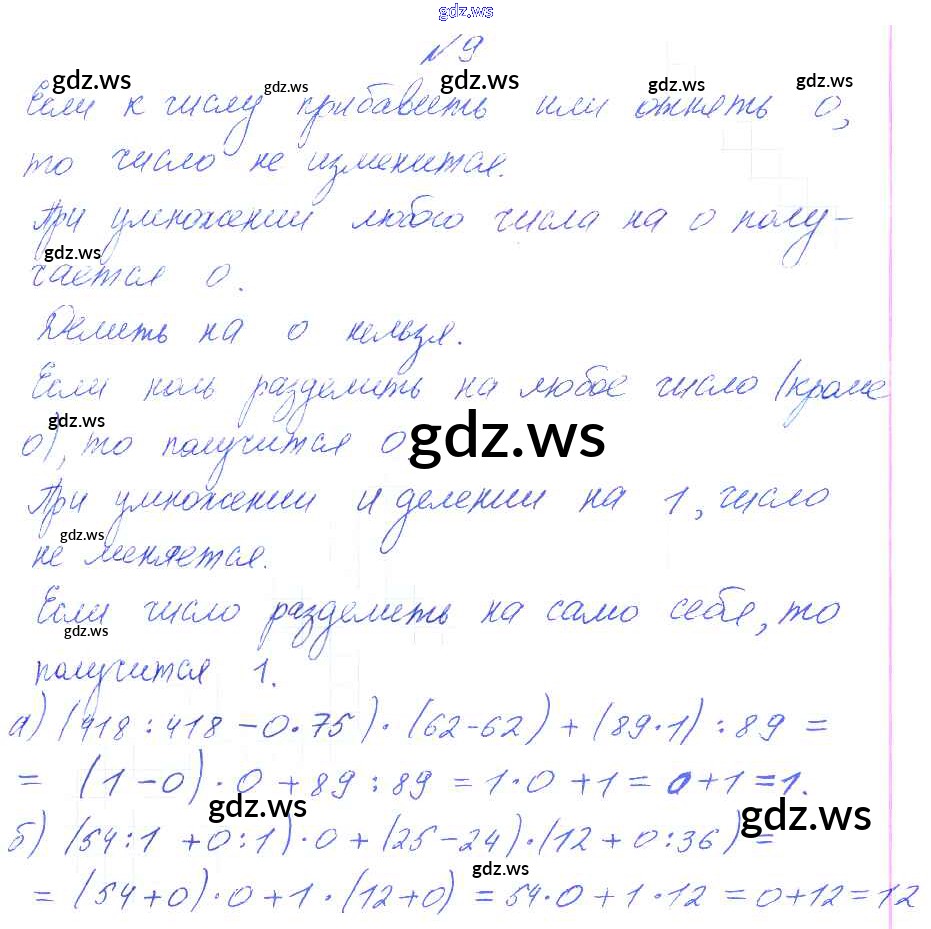 gdz.ws
№ 9
gdz.ws gdz.ws gdz.ws gdz.ws
Если к числу прибавить или отнять 0,
то число не изменится.
При умножении любого числа на 0 полу-
gdz.ws
чается 0.
Делить на 0 нельзя.
Если ноль разделить на любое число (кроме
gdz.ws
0), то получится 0.
gdz.ws
При умножении и делении на 1, число
gdz.ws
не меняется.
Если число разделить на само себя, то
gdz.ws
получится 1.
а) (418 : 418 - 0 · 75) · (62 - 62) + (89 · 1) : 89 =
= (1 - 0) · 0 + 89 : 89 = 1 · 0 + 1 = 0 + 1 = 1.
gdz.ws gdz.ws
б) (54 : 1 + 0 : 1) · 0 + (25 - 24) · (12 + 0 : 36) =
gdz.ws
= (54 + 0) · 0 + 1 · (12 + 0) = 54 · 0 + 1 · 12 = 0 + 12 = 12